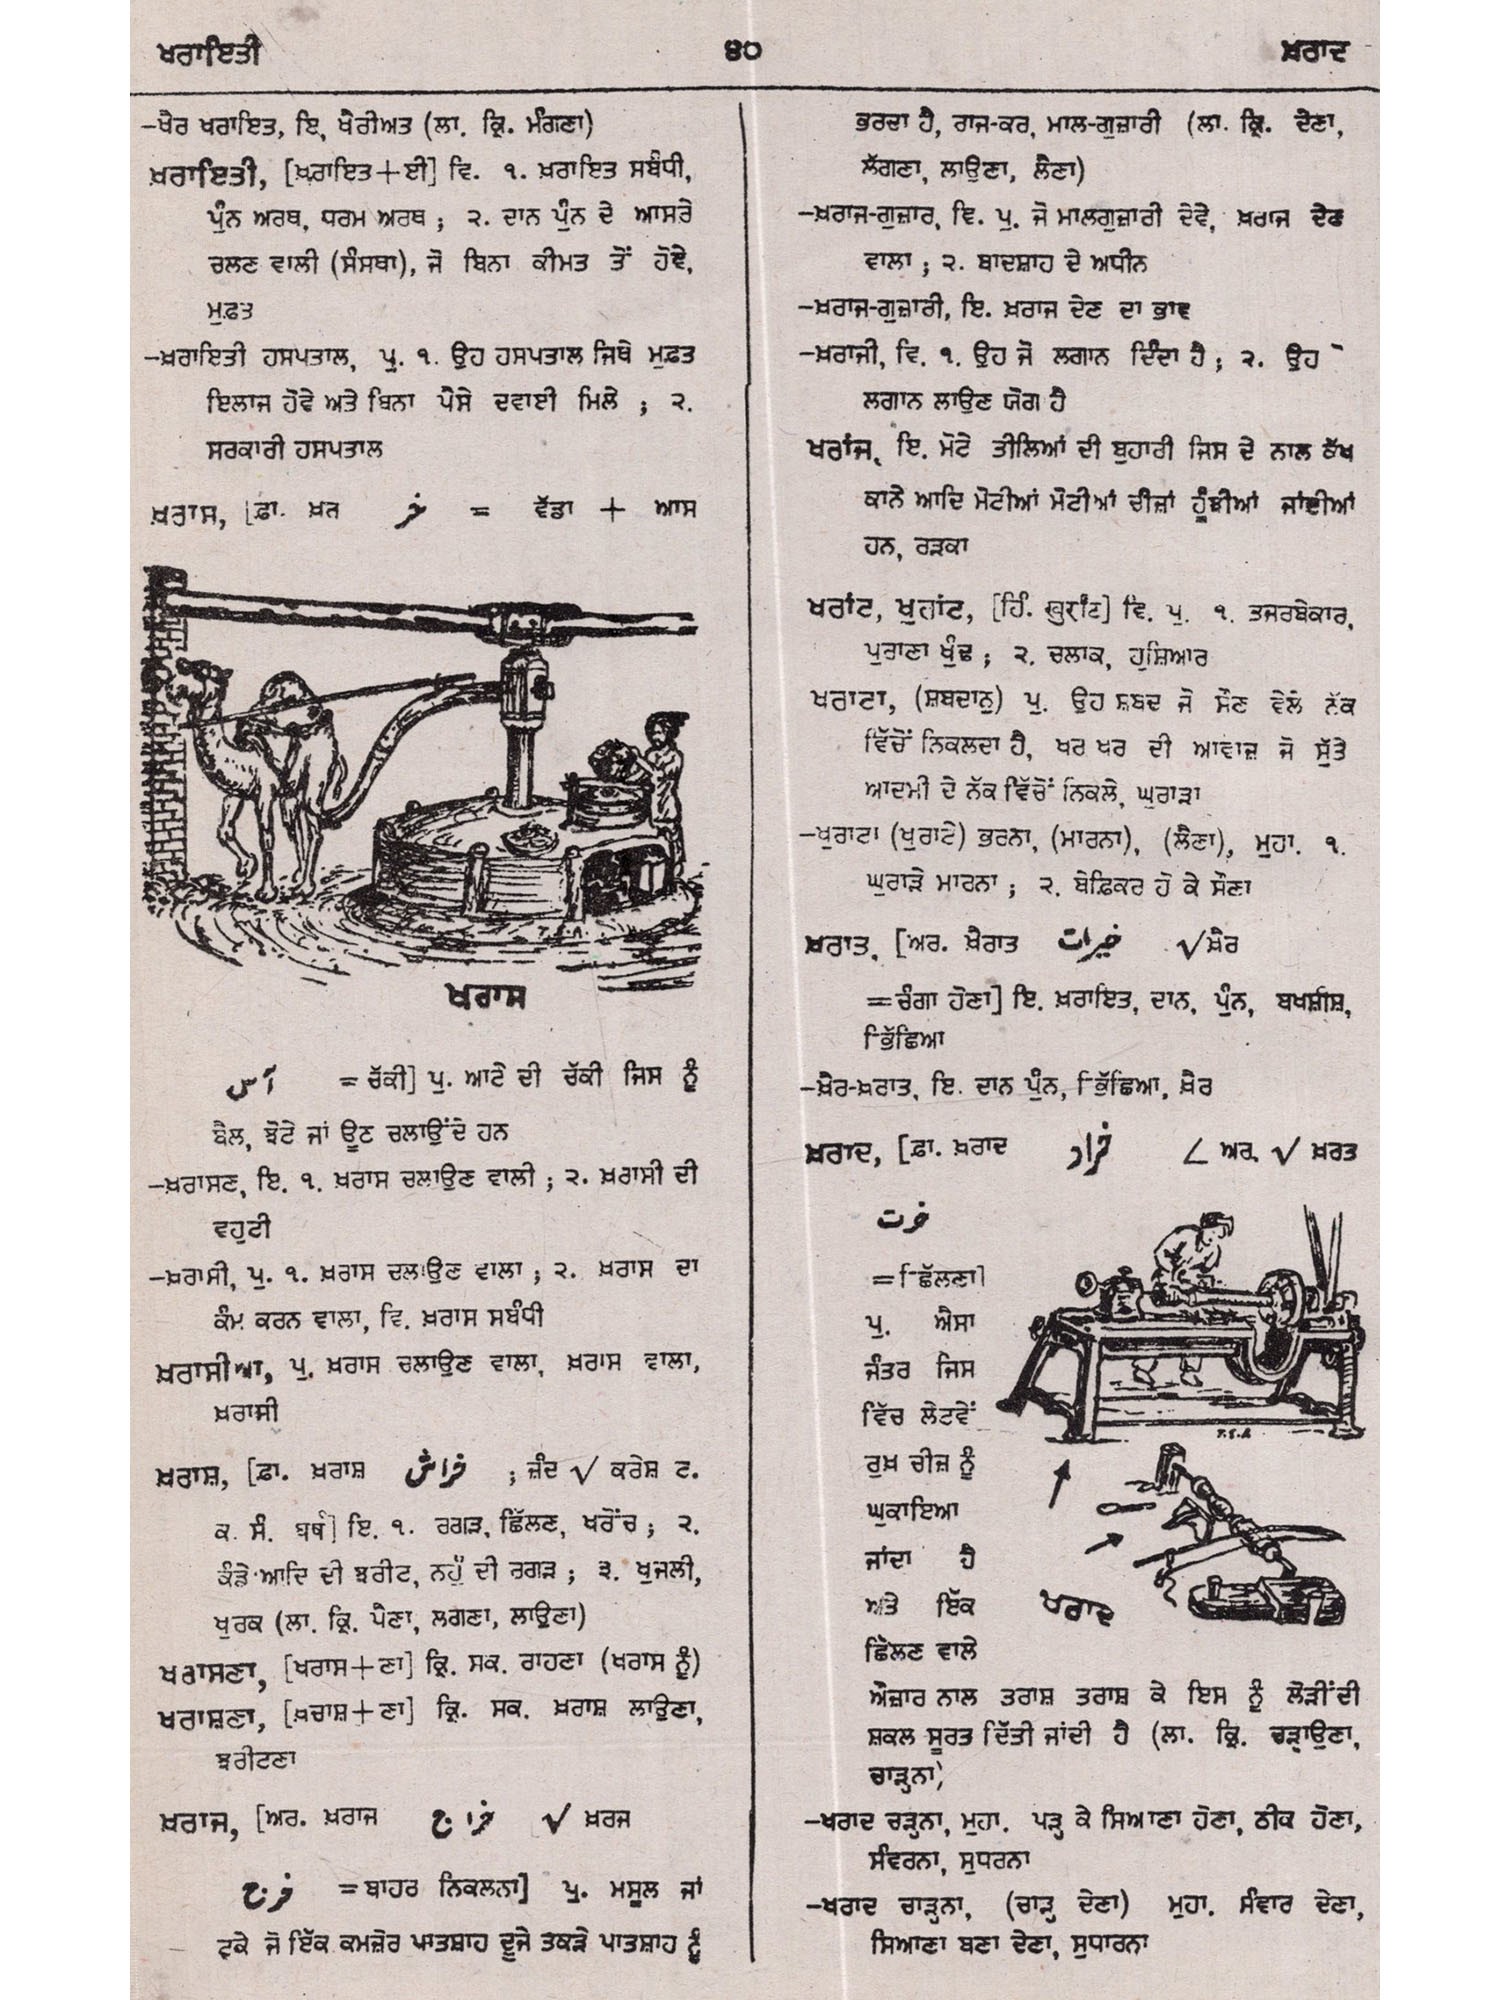 ਖਰਾਇਤੀ
੪੦
ਖ਼ਰਾਦ
–ਖੈਰ ਖਰਾਇਤ, ਇ, ਖੈਰੀਅਤ (ਲਾ. ਕ੍ਰਿ. ਮੰਗਣਾ)
ਖ਼ਰਾਇਤੀ, [ਖ਼ਰਾਇਤ+ਈ] ਵਿ. ੧. ਖ਼ਰਾਇਤ ਸਬੰਧੀ,
ਪੁੰਨ ਅਰਥ, ਧਰਮ ਅਰਥ ; ੨. ਦਾਨ ਪੁੰਨ ਦੇ ਆਸਰੇ
ਚਲਣ ਵਾਲੀ (ਸੰਸਥਾ), ਜੋ ਬਿਨਾ ਕੀਮਤ ਤੋਂ ਹੋਵੇ,
ਮੁਫ਼ਤ
–ਖ਼ਰਾਇਤੀ ਹਸਪਤਾਲ, ਪੁ. ੧. ਉਹ ਹਸਪਤਾਲ ਜਿਥੇ ਮੁਫ਼ਤ
ਇਲਾਜ ਹੋਵੇ ਅਤੇ ਬਿਨਾ ਪੈਸੇ ਦਵਾਈ ਮਿਲੇ ; ੨.
ਸਰਕਾਰੀ ਹਸਪਤਾਲ
ਖ਼ਰਾਸ, [ਫ਼ਾ. ਖ਼ਰ خر = ਵੱਡਾ + ਆਸ
ਖਰਾਸ
آس = ਚੱਕੀ] ਪੁ. ਆਟੇ ਦੀ ਚੱਕੀ ਜਿਸ ਨੂੰ
ਬੈਲ, ਝੋਟੇ ਜਾਂ ਊਠ ਚਲਾਉਂਦੇ ਹਨ
–ਖ਼ਰਾਸਣ, ਇ. ੧. ਖ਼ਰਾਸ ਚਲਾਉਣ ਵਾਲੀ ; ੨. ਖ਼ਰਾਸੀ ਦੀ
ਵਹੁਟੀ
–ਖ਼ਰਾਸੀ, ਪੁ. ੧. ਖ਼ਰਾਸ ਚਲਾਉਣ ਵਾਲਾ ; ੨. ਖ਼ਰਾਸ ਦਾ
ਕੰਮ ਕਰਨ ਵਾਲਾ, ਵਿ. ਖ਼ਰਾਸ ਸਬੰਧੀ
ਖ਼ਰਾਸੀਆ, ਪੁ. ਖ਼ਰਾਸ ਚਲਾਉਣ ਵਾਲਾ, ਖ਼ਰਾਸ ਵਾਲਾ,
ਖ਼ਰਾਸੀ
ਖ਼ਰਾਸ਼, [ਫ਼ਾ. ਖ਼ਰਾਸ਼ خراش ; ਜ਼ੰਦ √ ਕਰੇਸ਼ ਟ.
ਕ. ਸੰ. ] ਇ. ੧. ਰਗੜ, ਛਿੱਲਣ, ਖਰੋਂਚ ; ੨.
ਕੰਡੇ ਆਦਿ ਦੀ ਝਰੀਟ, ਨਹੁੰ ਦੀ ਰਗੜ ; ੩. ਖੁਜਲੀ,
ਖੁਰਕ (ਲਾ. ਕ੍ਰਿ. ਪੈਣਾ, ਲਗਣਾ, ਲਾਉਣਾ)
ਖਰਾਸਣਾ, [ਖਰਾਸ+ਣਾ] ਕ੍ਰਿ. ਸਕ. ਰਾਹਣਾ (ਖਰਾਸ ਨੂੰ)
ਖਰਾਸ਼ਣਾ, [ਖ਼ਚਾਸ਼+ਣਾ] ਕ੍ਰਿ. ਸਕ. ਖ਼ਰਾਸ਼ ਲਾਉਣਾ,
ਝਰੀਟਣਾ
ਖ਼ਰਾਜ, [ਅਰ. ਖ਼ਰਾਜ خراج √ ਖ਼ਰਜ
خرج = ਬਾਹਰ ਨਿਕਲਨਾ] ਪੁ. ਮਸੂਲ ਜਾਂ
ਟਕੇ ਜੋ ਇੱਕ ਕਮਜ਼ੋਰ ਪਾਤਸ਼ਾਹ ਦੂਜੇ ਤਕੜੇ ਪਾਤਸ਼ਾਹ ਨੂੰ
ਭਰਦਾ ਹੈ, ਰਾਜ-ਕਰ, ਮਾਲ-ਗੁਜ਼ਾਰੀ (ਲਾ. ਕ੍ਰਿ. ਦੇਣਾ,
ਲੱਗਣਾ, ਲਾਉਣਾ, ਲੈਣਾ)
–ਖ਼ਰਾਜ-ਗੁਜ਼ਾਰ, ਵਿ. ਪੁ. ਜੋ ਮਾਲਗੁਜ਼ਾਰੀ ਦੇਵੇ, ਖ਼ਰਾਜ ਦੇਣ
ਵਾਲਾ ; ੨. ਬਾਦਸ਼ਾਹ ਦੇ ਅਧੀਨ
–ਖ਼ਰਾਜ-ਗੁਜ਼ਾਰੀ, ਇ. ਖ਼ਰਾਜ ਦੇਣ ਦਾ ਭਾਵ
–ਖ਼ਰਾਜੀ, ਵਿ. ੧. ਉਹ ਜੋ ਲਗਾਨ ਦਿੰਦਾ ਹੈ ; ੨. ਉਹ
ਲਗਾਨ ਲਾਉਣ ਯੋਗ ਹੈ
ਖਰਾਂਜ, ਇ. ਮੋਟੇ ਤੀਲਿਆਂ ਦੀ ਬੁਹਾਰੀ ਜਿਸ ਦੇ ਨਾਲ ਕੱਖ
ਕਾਨੇ ਆਦਿ ਮੋਟੀਆਂ ਮੋਟੀਆਂ ਚੀਜ਼ਾਂ ਹੂੰਝੀਆਂ ਜਾਂਦੀਆਂ
ਹਨ, ਰੜਕਾ
ਖਰਾਂਟ, ਖੁਰਾਂਟ, [ਹਿੰ. खुर्राट] ਵਿ. ਪੁ. ੧. ਤਜਰਬੇਕਾਰ,
ਪੁਰਾਣਾ ਖੁੰਢ ; ੨. ਚਲਾਕ, ਹੁਸ਼ਿਆਰ
ਖਰਾਟਾ, (ਸ਼ਬਦਾਨੁ) ਪੁ. ਉਹ ਸ਼ਬਦ ਜੋ ਸੌਣ ਵੇਲੇ ਨੱਕ
ਵਿੱਚੋਂ ਨਿਕਲਦਾ ਹੈ, ਖਰ ਖਰ ਦੀ ਆਵਾਜ਼ ਜੋ ਸੁੱਤੇ
ਆਦਮੀ ਦੇ ਨੱਕ ਵਿੱਚੋਂ ਨਿਕਲੇ, ਘੁਰਾੜਾ
–ਖੁਰਾਟਾ (ਖੁਰਾਟੇ) ਭਰਨਾ, (ਮਾਰਨਾ), (ਲੈਣਾ), ਮੁਹਾ. ੧.
ਘੁਰਾੜੇ ਮਾਰਨਾ ; ੨. ਬੇਫ਼ਿਕਰ ਹੋ ਕੇ ਸੌਣਾ
ਖ਼ਰਾਤ, [ਅਰ. ਖ਼ੈਰਾਤ خیرات √ਖ਼ੈਰ
=ਚੰਗਾ ਹੋਣਾ] ਇ. ਖ਼ਰਾਇਤ, ਦਾਨ, ਪੁੰਨ, ਬਖਸ਼ੀਸ਼,
ਭਿੱਛਿਆ
–ਖ਼ੈਰ-ਖ਼ਰਾਤ, ਇ. ਦਾਨ ਪੁੰਨ, ਭਿੱਛਿਆ, ਖ਼ੈਰ
ਖ਼ਰਾਦ, [ਫ਼ਾ. ਖ਼ਰਾਦ خراد ∠ ਅਰ. √ ਖ਼ਰਤ
خرت
=ਛਿੱਲਣਾ]
ਪੁ. ਐਸਾ
ਜੰਤਰ ਜਿਸ
ਵਿੱਚ ਲੇਟਵੇਂ
ਰੁਖ਼ ਚੀਜ਼ ਨੂੰ
ਘੁਕਾਇਆ
ਜਾਂਦਾ ਹੈ
ਅਤੇ ਇੱਕ
ਛਿੱਲਣ ਵਾਲੇ
ਖਰਾਦ
ਔਜ਼ਾਰ ਨਾਲ ਤਰਾਸ਼ ਤਰਾਸ਼ ਕੇ ਇਸ ਨੂੰ ਲੋੜੀਂਦੀ
ਸ਼ਕਲ ਸੂਰਤ ਦਿੱਤੀ ਜਾਂਦੀ ਹੈ (ਲਾ. ਕ੍ਰਿ. ਚੜ੍ਹਾਉਣਾ,
ਚਾੜ੍ਹਨਾ)
–ਖਰਾਦ ਚੜ੍ਹਨਾ, ਮੁਹਾ. ਪੜ੍ਹ ਕੇ ਸਿਆਣਾ ਹੋਣਾ, ਠੀਕ ਹੋਣਾ,
ਸੰਵਰਨਾ, ਸੁਧਰਨਾ
–ਖਰਾਦ ਚਾੜ੍ਹਨਾ, (ਚਾੜ੍ਹ ਦੇਣਾ) ਮੁਹਾ. ਸੰਵਾਰ ਦੇਣਾ,
ਸਿਆਣਾ ਬਣਾ ਦੇਣਾ, ਸੁਧਾਰਨਾ